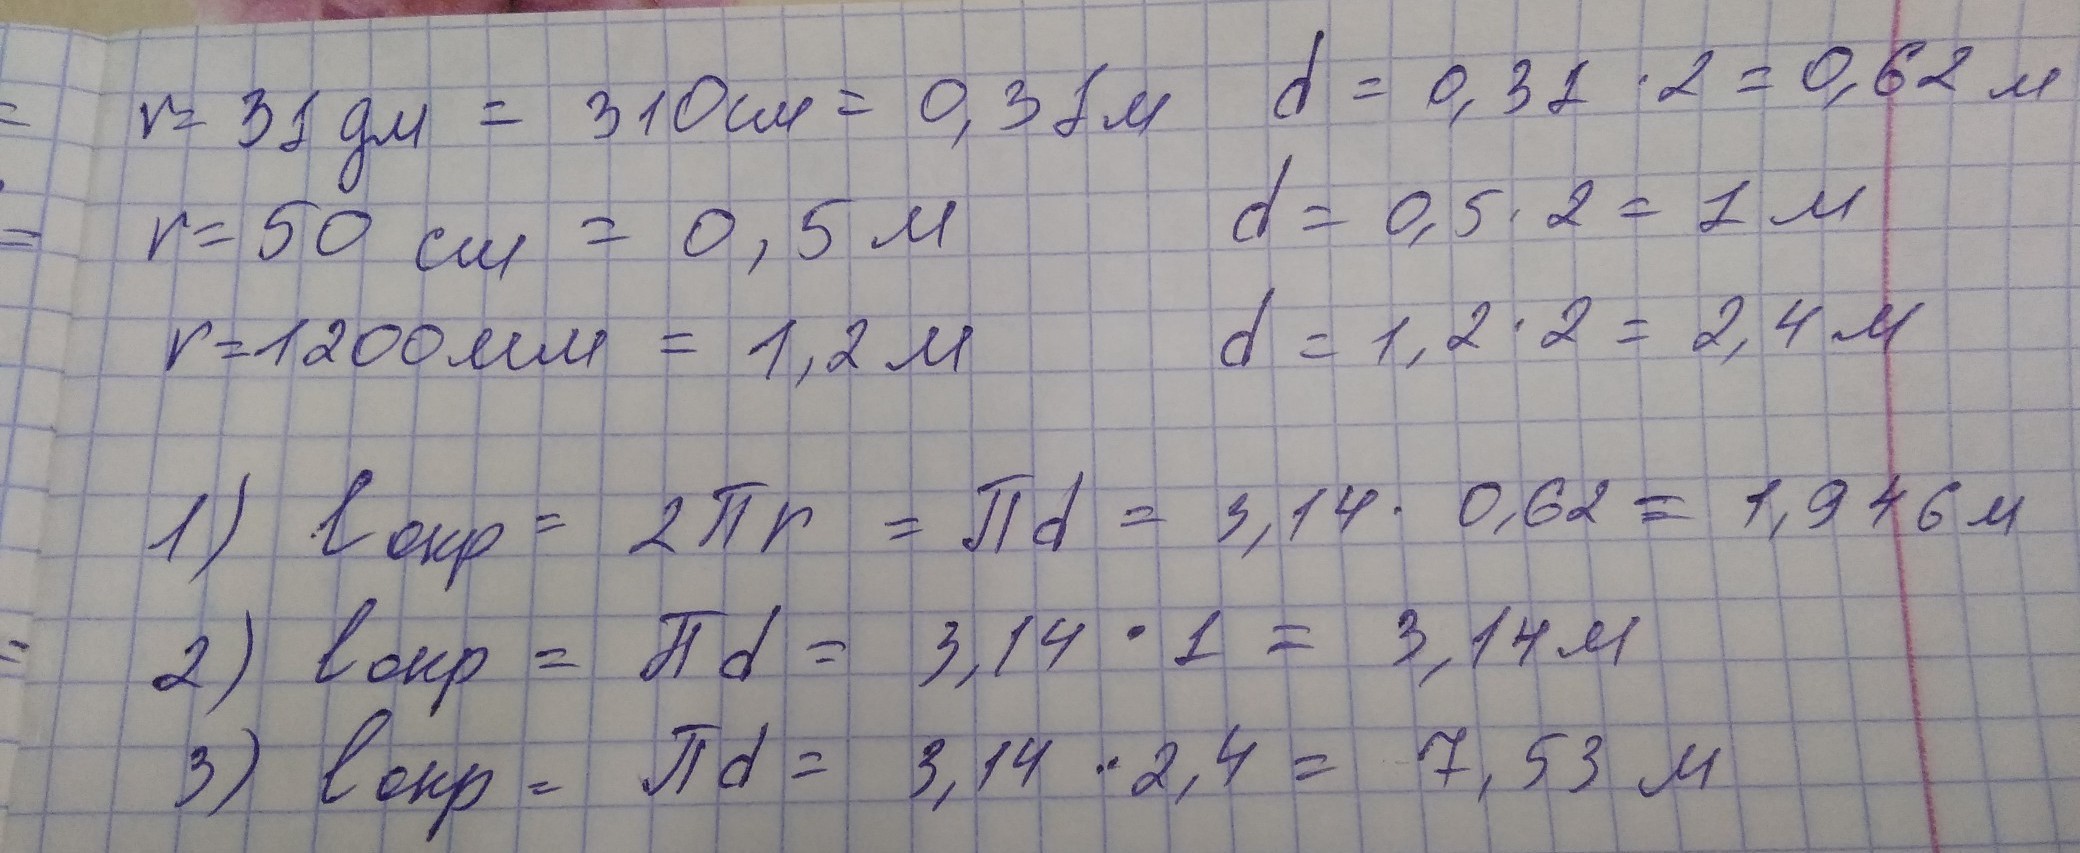 r = 31 дм = 310 см = 0,31 м d = 0,31 · 2 = 0,62 м
r = 50 см = 0,5 м d = 0,5 · 2 = 1 м
r = 1200 мм = 1,2 м d = 1,2 · 2 = 2,4 м
1) l окр = 2πr = πd = 3,14 · 0,62 = 1,946 м
2) l окр = πd = 3,14 · 1 = 3,14 м
3) l окр = πd = 3,14 · 2,4 = 7,53 м